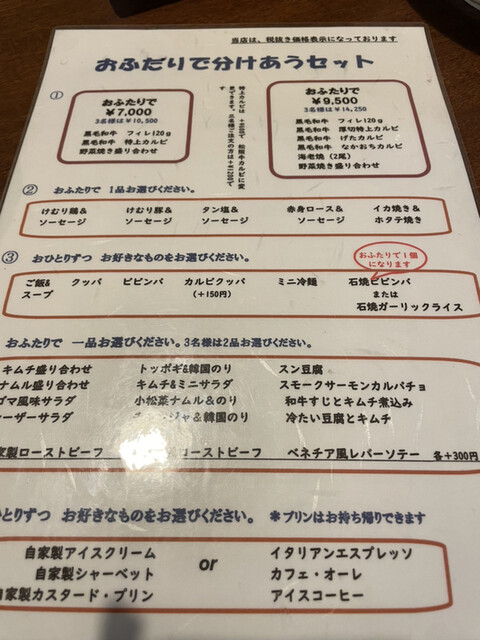 当店は、税抜き価格表示になっております
おふたりで分けあうセット
①
おふたりで
¥7,000
3名様は¥10,500
黒毛和牛 フィレ120g
黒毛和牛 特上カルビ
野菜焼き盛り合わせ
特上カルビ
更できます。三名様ご注文の方は
おふたりで
¥9,500
3名様は¥14,250
黒毛和牛 フィレ120g
黒毛和牛 厚切特上カルビ
黒毛和牛 げたカルビ
黒毛和牛 なかおちカルビ
海老焼(2尾)
野菜焼き盛り合わせ
② おふたりで 1品お選びください。
けむり鶏& ソーセージ
けむり豚& ソーセージ
タン塩& ソーセージ
赤身ロース& ソーセージ
イカ焼き& ホタテ焼き
③ おひとりずつ お好きなものをお選びください。
おふたりで1個になります
ご飯& スープ
クッパ
ビビンバ
カルビクッパ (+150円)
ミニ冷麺
石焼ビビンバ
または
石焼ガーリックライス
おふたりで 一品お選びください。3名様は2品お選びください。
キムチ盛り合わせ
トッポギ&韓国のり
スン豆腐
ナムル盛り合わせ
キムチ&ミニサラダ
スモークサーモンカルパチョ
ゴマ風味サラダ
小松菜ナムル&のり
和牛すじとキムチ煮込み
ーザーサラダ
ジャ&韓国のり
冷たい豆腐とキムチ
家製ローストビーフ
ローストビーフ
ベネチア風レバーソテー 各+300円
ひとりずつ お好きなものをお選びください。 *プリンはお持ち帰りできます
自家製アイスクリーム
自家製シャーベット
自家製カスタード・プリン
or
イタリアンエスプレッソ
カフェ・オーレ
アイスコーヒー